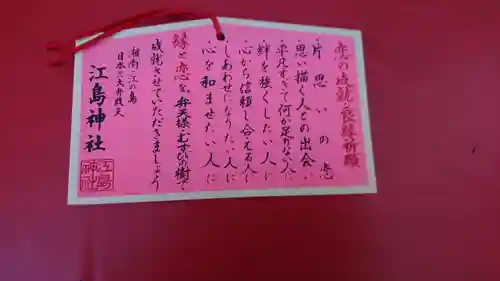 恋の成就と良縁祈願
・片思いの恋
・思い描く人との出会い
・平凡すぎて何か足りない人に
・絆を強くしたい人に
・心から信頼し合える人に
・しあわせになりたい人に
・心を和ませたい人に
縁と恋を、弁天様とむすびの樹で
成就させていただきましょう
湘南・江の島
日本三大弁財天
江島神社
江島神社